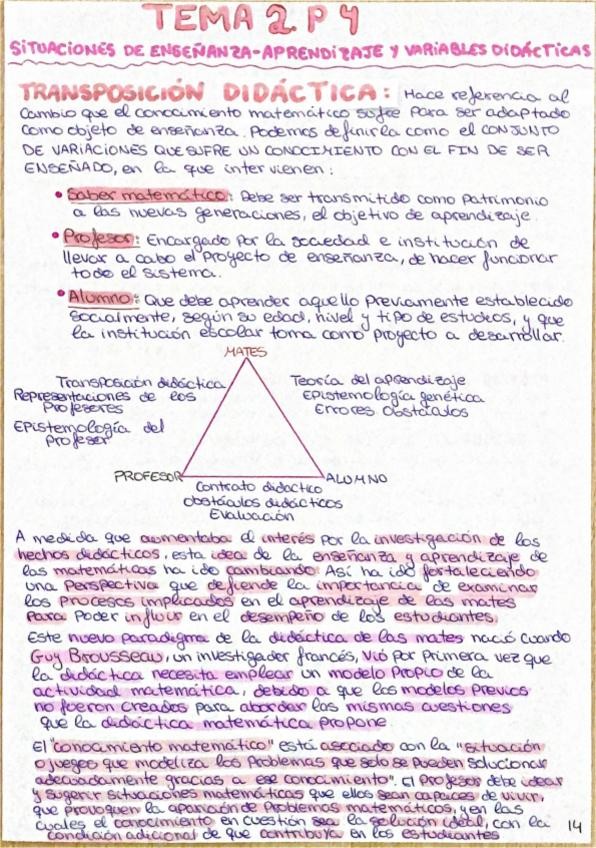 TEMA 2. P 4
SITUACIONES DE ENSEÑANZA-APRENDIZAJE Y VARIABLES DIDÁCTICAS
TRANSPOSICIÓN DIDÁCTICA: Hace referencia al
cambio que el conocimiento matemático sufre para ser adaptado
como objeto de enseñanza. Podemos definirla como el CONJUNTO
DE VARIACIONES QUE SUFRE UN CONOCIMIENTO CON EL FIN DE SER
ENSEÑADO, en la que intervienen:
• Saber matemático: Debe ser transmitido como patrimonio
a las nuevas generaciones, el objetivo de aprendizaje.
• Profesor: Encargado por la sociedad e institución de
llevar a cabo el proyecto de enseñanza, de hacer funcionar
todo el sistema.
• Alumno: Que debe aprender aquello previamente establecido
socialmente, según su edad, nivel y tipo de estudios, y que
la institución escolar toma como proyecto a desarrollar.
MATES
Transposición didáctica
Representaciones de los
Profesores
Epistemología del
Profesor
Teoría del aprendizaje
Epistemología genética
Errores obstáculos
PROFESOR
ALUMNO
Contrato didactico
obstáculos didácticos
Evaluación
A medida que aumentaba el interés por la investigación de los
hechos didácticos, esta idea de la enseñanza y aprendizaje de
las matemáticas ha ido cambiando. Así ha ido fortaleciendo
una perspectiva que defiende la importancia de examinar
los procesos implicados en el aprendizaje de las mates
para poder influir en el desempeño de los estudiantes.
Este nuevo paradigma de la didáctica de las mates nació cuando
Guy Brousseau, un investigador francés, vió por primera vez que
la didáctica necesita emplear un modelo propio de la
actividad matemática, debido a que los modelos previos
no fueron creados para abordar las mismas cuestiones
que la didáctica matemática propone.
El "conocimiento matemático" está asociado con la "situación
o juegos que modeliza los problemas que solo se pueden solucionar
adecuadamente gracias a ese conocimiento". El profesor debe idear
y sugerir situaciones matemáticas que ellos sean capaces de vivir,
que provoquen la aparición de problemas matemáticos, y en las
cuales el conocimiento en cuestión sea la solución ideal, con la
condición adicional de que contribuya en los estudiantes
14